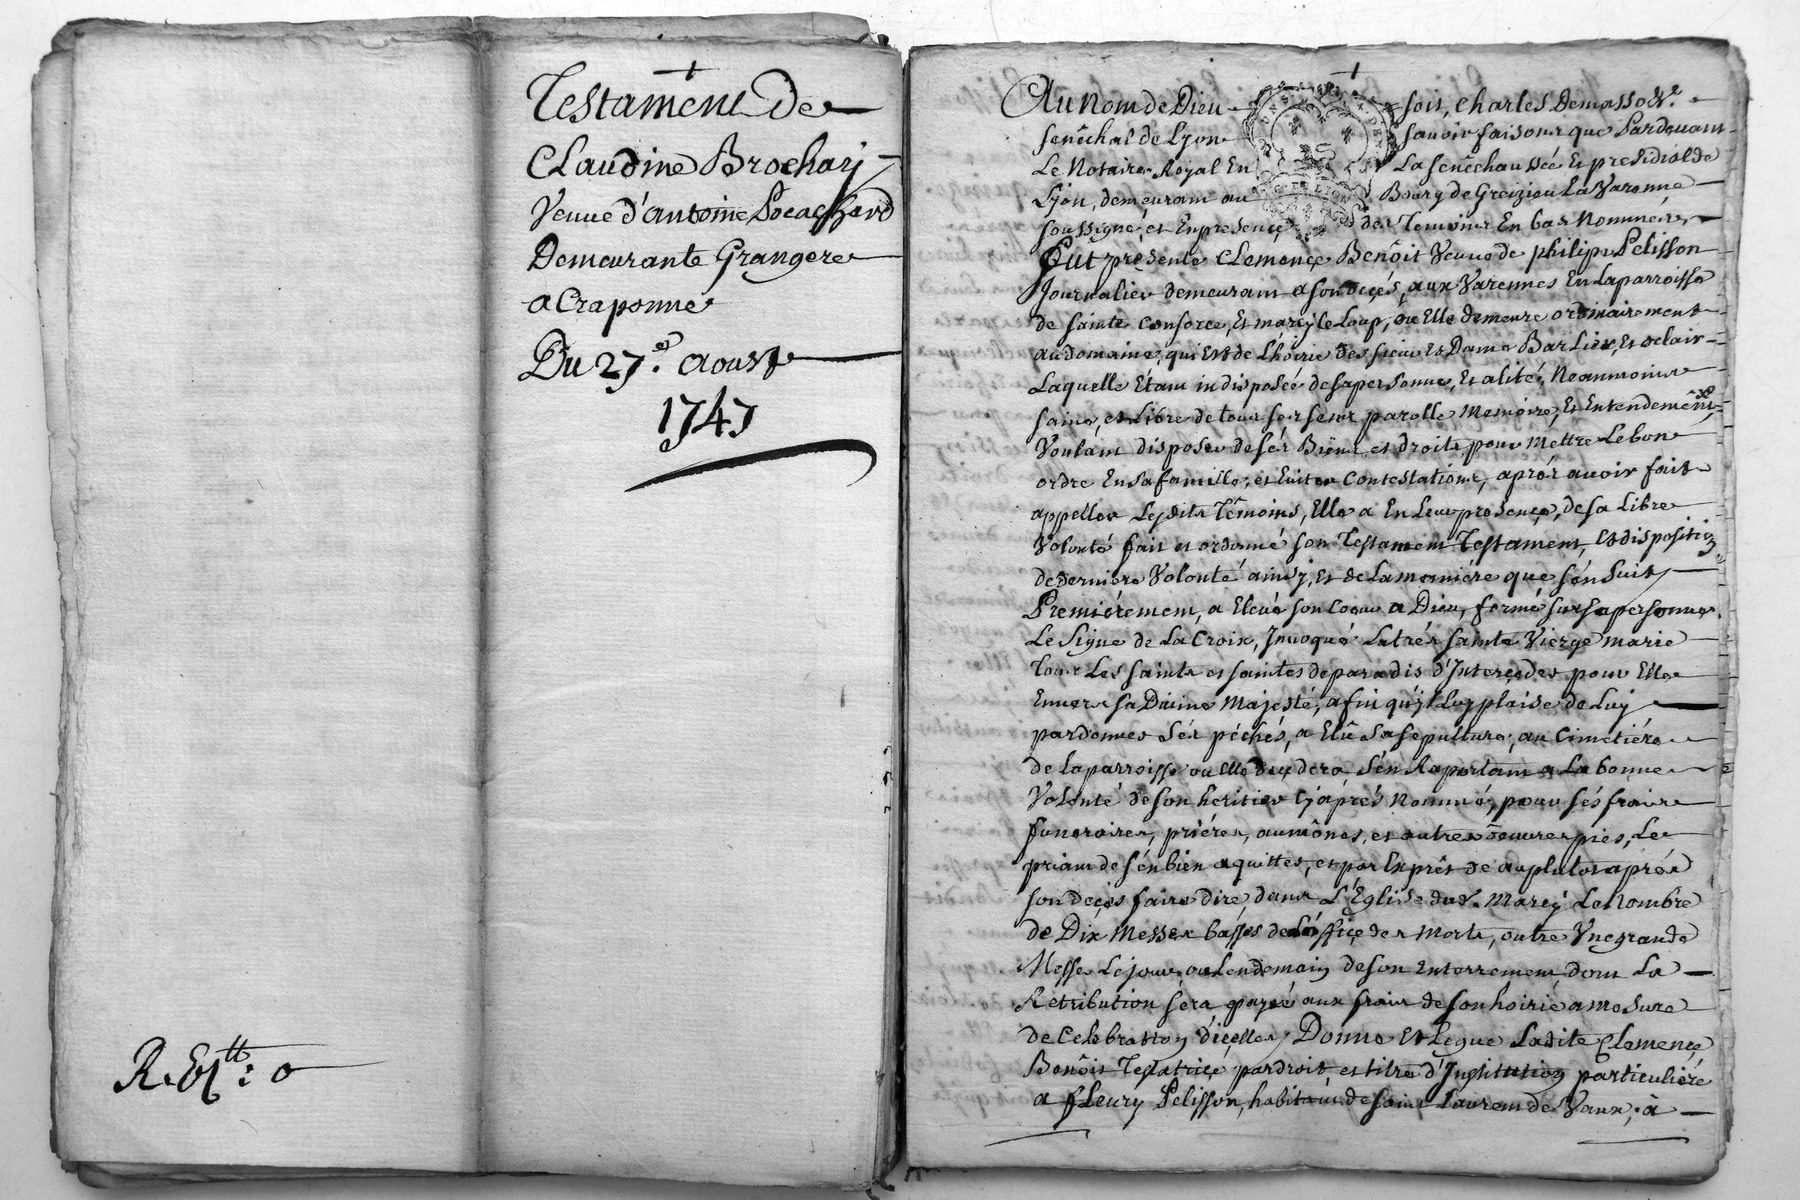 Testament de
Claudine Brochaÿ
Veuve d'antoine Locachard
Demeurante Grangere
a Craponne
Du 27.e aoust
1747
R. Ett: o
Au Nom de Dieu soit, Charles Demasso &c.
senêchal de Lyon savoir faisons que Pardevant
Le Notaire Royal En La senêchaussée Et presidial de
Lyon, demeurant au Bourg de Greizieu La Varenne
soussigné, et En presence des Temoins En bas Nommés,
Fut presente Clemençe Benôit Veuve de philipe Pelisson
Journalier demeurant a son deçés, aux Varennes En Laparroisse
de sainte Consorce, Et marcy le Loup, ou Elle demeure ordinairement
au domaine, qui Est de L'hoirie des sieur Et Dame Barlier, Et oclair
Laquelle Étant indisposée de sa personne, Et alitée, Neanmoins
saine, et Libre de tous ses sens parolle Memoire, Et Entendemênt,
Voulant disposer de sés Biens et droits pour Mettre Le bon
ordre En sa famille, et Eviter Contestations, aprés avoir fait
appeller Lesdits Têmoins, Elle a En Leur presençe, de sa Libre
Volonté fait et ordonné son Testament Testament, Et disposition
de derniere Volonté ainsy, Et de La maniére que s'én suit
Premiérement, a Elevé son Coeur a Dieu, formé sur sa personne
Le signe de La Croix, Invoqué La trés sainte Vierge marie
tous Les saints et saintes de paradis d'Interçeder pour Elle
Envers sa Divine Majesté, afin qu'il Luy plaise de Luy
pardonner sés péchés, a Elû sa sepulture, au Cimetiére
de Laparroisse ou Elle deçedera, s'én Raportant a La bonne
Volonté de son heritier Cy aprés Nommé, pour sés frais
funeraires, priéres, aumônes, et autres oeuvres pies, Le
priant de s'én bien aquitter, et par Exprés de au plutot aprés
son deçés faire dire dans L'Église dud. Marcy Le Nombre
de Dix Messes basses de L'óffiçe des Morts, outre Vne grande
Messe Le jour ou Lendemain de son Enterrement dont La
Retribution sera payée aux frais de son hoirie a mesure
de Celebration d'içelles, Donne Et Legue Ladite Clemençe
Benôit Testatriçe par droit et titre d'Institution particuliére
a fleury Pelisson, habitant de saint Laurent de Vaux, à